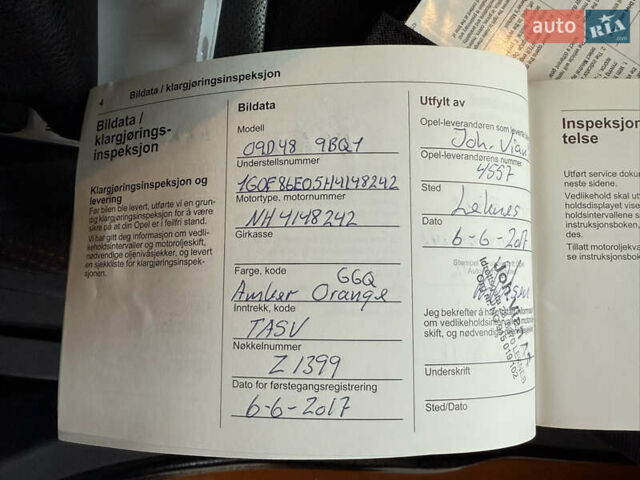 4 Bildata / klargjøringsinspeksjon
Bildata /
klargjørings-
inspeksjon
Klargjøringsinspeksjon og
levering
Før bilen ble levert, utførte vi en grun-
dig klargjøringsinspeksjon for å være
sikre på at din Opel er i feilfri stand.
Vi har gitt deg informasjon om vedli-
keholdsintervaller og motoroljeskift,
nødvendige oljenivåsjekker, og levert
en sjekkliste for klargjøringsinspek-
sjonen.
Bildata
Modell
09D48 9BQ1
Understellsnummer
1G0F86E05H4148242
Motortype, motornummer
NH4148242
Girkasse
Farge, kode GGQ
Amber Orange
Inntrekk, kode
TASV
Nøkkelnummer
Z1399
Dato for førstegangsregistrering
6-6-2017
Utfylt av
Opel-leverandøren som
Joh. Vian
Opel-leverandørens nummer
4557
Sted
Leknes
Dato
6-6-2017
Stempel
Jeg bekrefter å ha
om vedlikeholdsinter
skift, og nødvendige
Underskrift
Sted/Dato
Inspeksjon
telse
Utført service doku
neste sidene.
Vedlikehold skal ut
holdsdisplayet vise
holdsintervallene s
instruksjonsboken,
des.
Tillatt motoroljekva
se instruksjonsbok
auto RIA .com